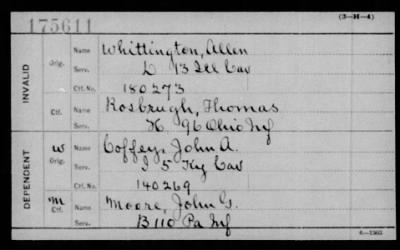 175611
(3-H-4)
INVALID
Orig.
Name Whittington, Allen
Serv. L 13 Ill Cav
Ctf. No. 180273
Ctf.
Name Rosbrugh, Thomas
Serv. K. 96 Ohio Inf
DEPENDENT
W
Orig.
Name Coffey, John A.
Serv. I 5 Ky Cav
Ctf. No. 140269
M
Ctf.
Name Moore, John G.
Serv. B 110 Pa Inf